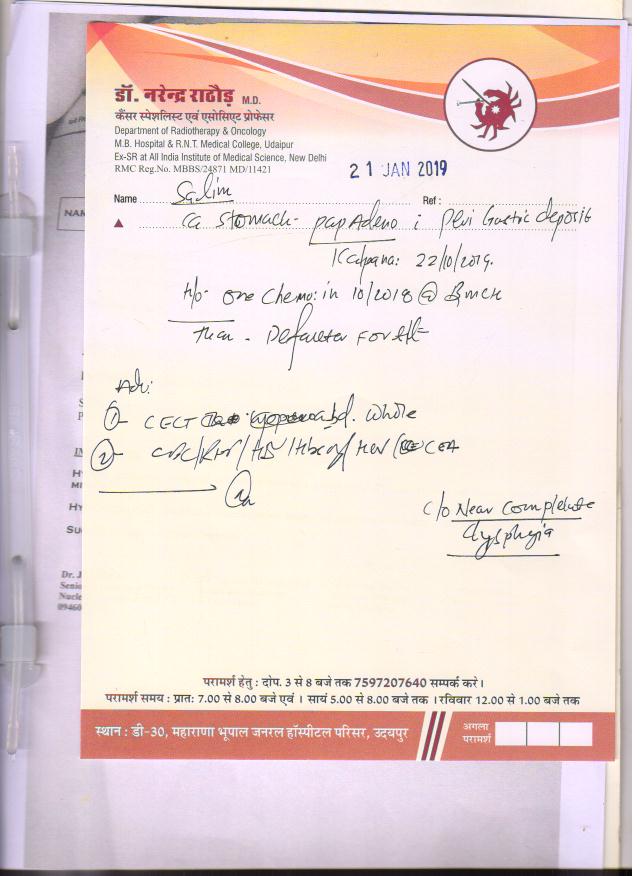 डॉ. नरेन्द्र राठौड़ M.D.
कैंसर स्पेशलिस्ट एवं एसोसिएट प्रोफेसर
Department of Radiotherapy & Oncology
M.B. Hospital & R.N.T. Medical College, Udaipur
Ex-SR at All India Institute of Medical Science, New Delhi
RMC Reg.No. MBBS/24871 MD/11421
21 JAN 2019
Name Salim Ref :
Ca stomach - pap Adeno i Peri Gastric deposit
Kalpana: 22/10/2019.
H/o - one Chemo: in 10/2018 @ BMCH
Then - Defaulter For
Adv:
1- CECT abd. Whole
2- CBC/RFT/ CEA
C/o Near Complete
dysphagia
NAM
Dr. J
Senio
Nucle
09460
परामर्श हेतु : दोप. 3 से 8 बजे तक 7597207640 सम्पर्क करें।
परामर्श समय : प्रातः 7.00 से 8.00 बजे एवं । सायं 5.00 से 8.00 बजे तक । रविवार 12.00 से 1.00 बजे तक
स्थान : डी-30, महाराणा भूपाल जनरल हॉस्पीटल परिसर, उदयपुर
अगला
परामर्श